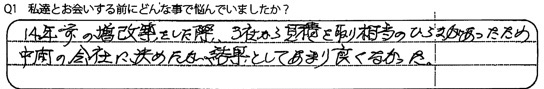 Q1 私達とお会いする前にどんな事で悩んでいましたか？
14年前の増改築をした際、3社から見積を取り相当のひらきがあったため
中間の会社に決めたが結果としてあまり良くなかった。